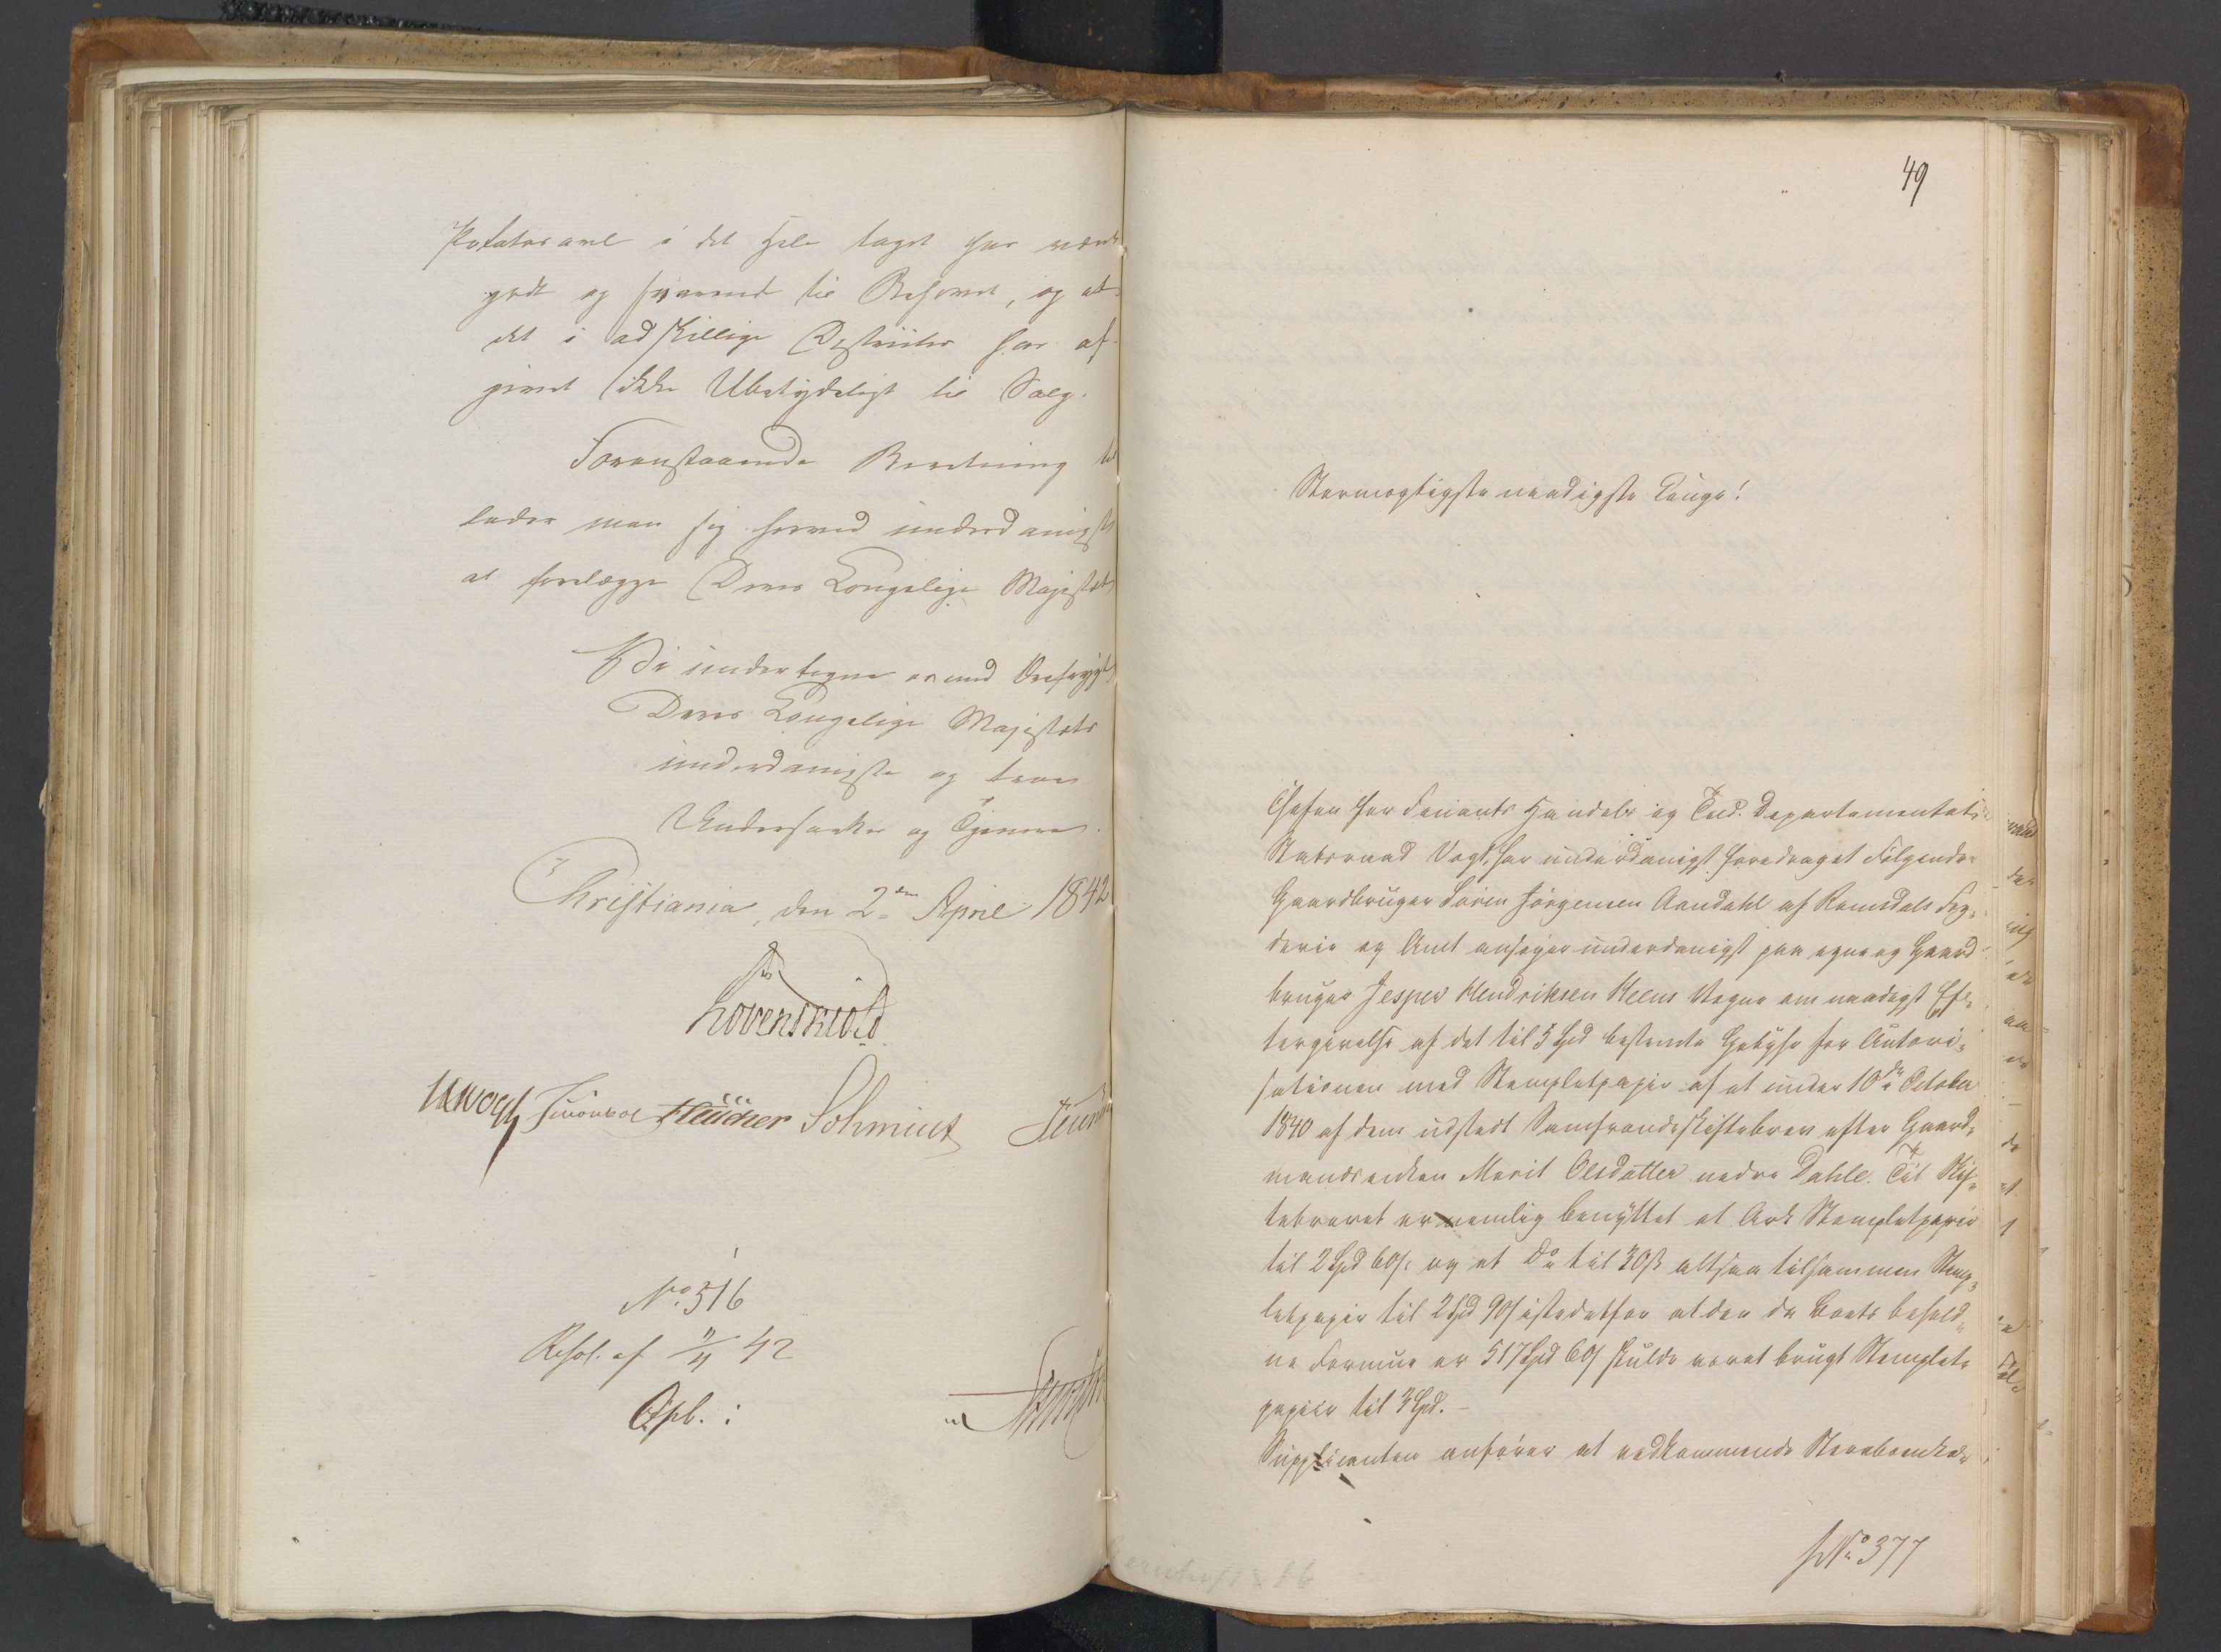 Potatosavl i det Hele taget har været
godt og svarende til Behovet, og at
det i adskillige Districter har af-
givet ikke Ubetydeligt til Salg.
Foranstaaende Beretning til
lader man sig herved underdanigst
at forelægge Deres Kongelige Majestæt
Vi undertegne os med Ærefrygt
Deres Kongelige Majestæts
underdanigste og troe
Undersaatter og Tjenere.
Christiania, den 2den April 1842
Løvenskiold
Vogt Schmidt
No 516
Resol. af 11/4 42
Expl. :
49
Stormægtigste naadigste Konge!
Chefen for Finants Handels og Told-Departementet
Statsraad Vogt, har underdanigst foredraget Følgende:
Gaardbruger Søren Jørgensen Aandahl af Romsdals Fog-
derie og Amt ansøger underdanigst paa egne og Gaard-
bruger Jesper Hendriksen Heens Vegne om naadigst Ef-
tergivelse af det til 5 Spd bestemte Gebyhr for Autori-
sationen med Stemplet papir af et under 10de October
1840 af dem udstedt Samfrændeskiftebrev efter Gaard-
mandsenken Marit Olsdatter nedre Dahle. Til Skif-
tebrevet er nemlig benyttet et Ark Stemplet papir
til 2 Spd 60 s. og et Do til 30 s altsaa tilsammen Stemp-
letpapir til 2 Spd 90 s istedetfor at der da Boets behold-
ne Formue er 517 Spd 60 s skulde været brugt Stemplet-
papir til 3 Spd. –
Supplicanten anfører at vedkommende Stervboenke
JNo 377